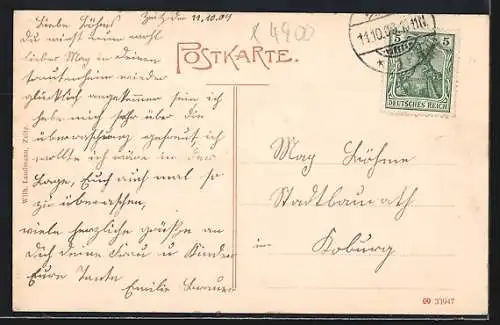 Zeitz den 11.10.09
Liebe Böhms
Du wirst nun wohl
lieber Max in deinem
wieder
glücklich angekommen sein ich
habe mich sehr über die
überraschung gefreut, ich
wollte ich wäre in der
Lage, Euch auch mal so
zu überraschen,
viele herzliche grüße an
Dich deine Frau u Kinder
Eure Tante
Emilie
POSTKARTE.
4900
11.10.09
5 5
DEUTSCHES REICH
Max Böhme
Stadtbaurath
in Koburg
Wilh. Landmann, Zeitz.
69 33947